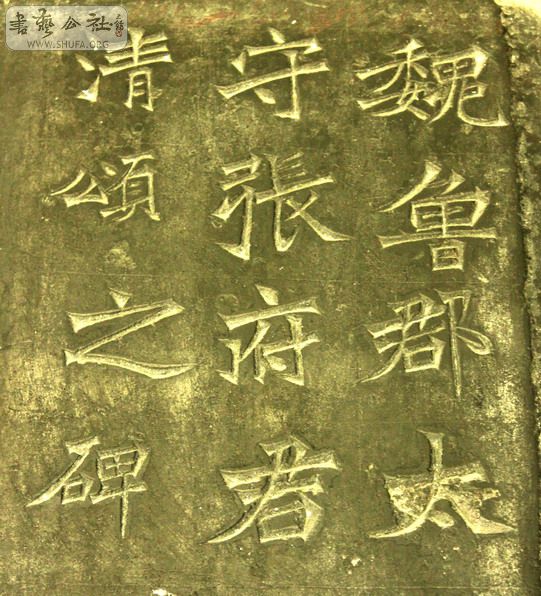 魏魯郡太
守張府君
清頌之碑
書藝公社
WWW.SHUFA.ORG